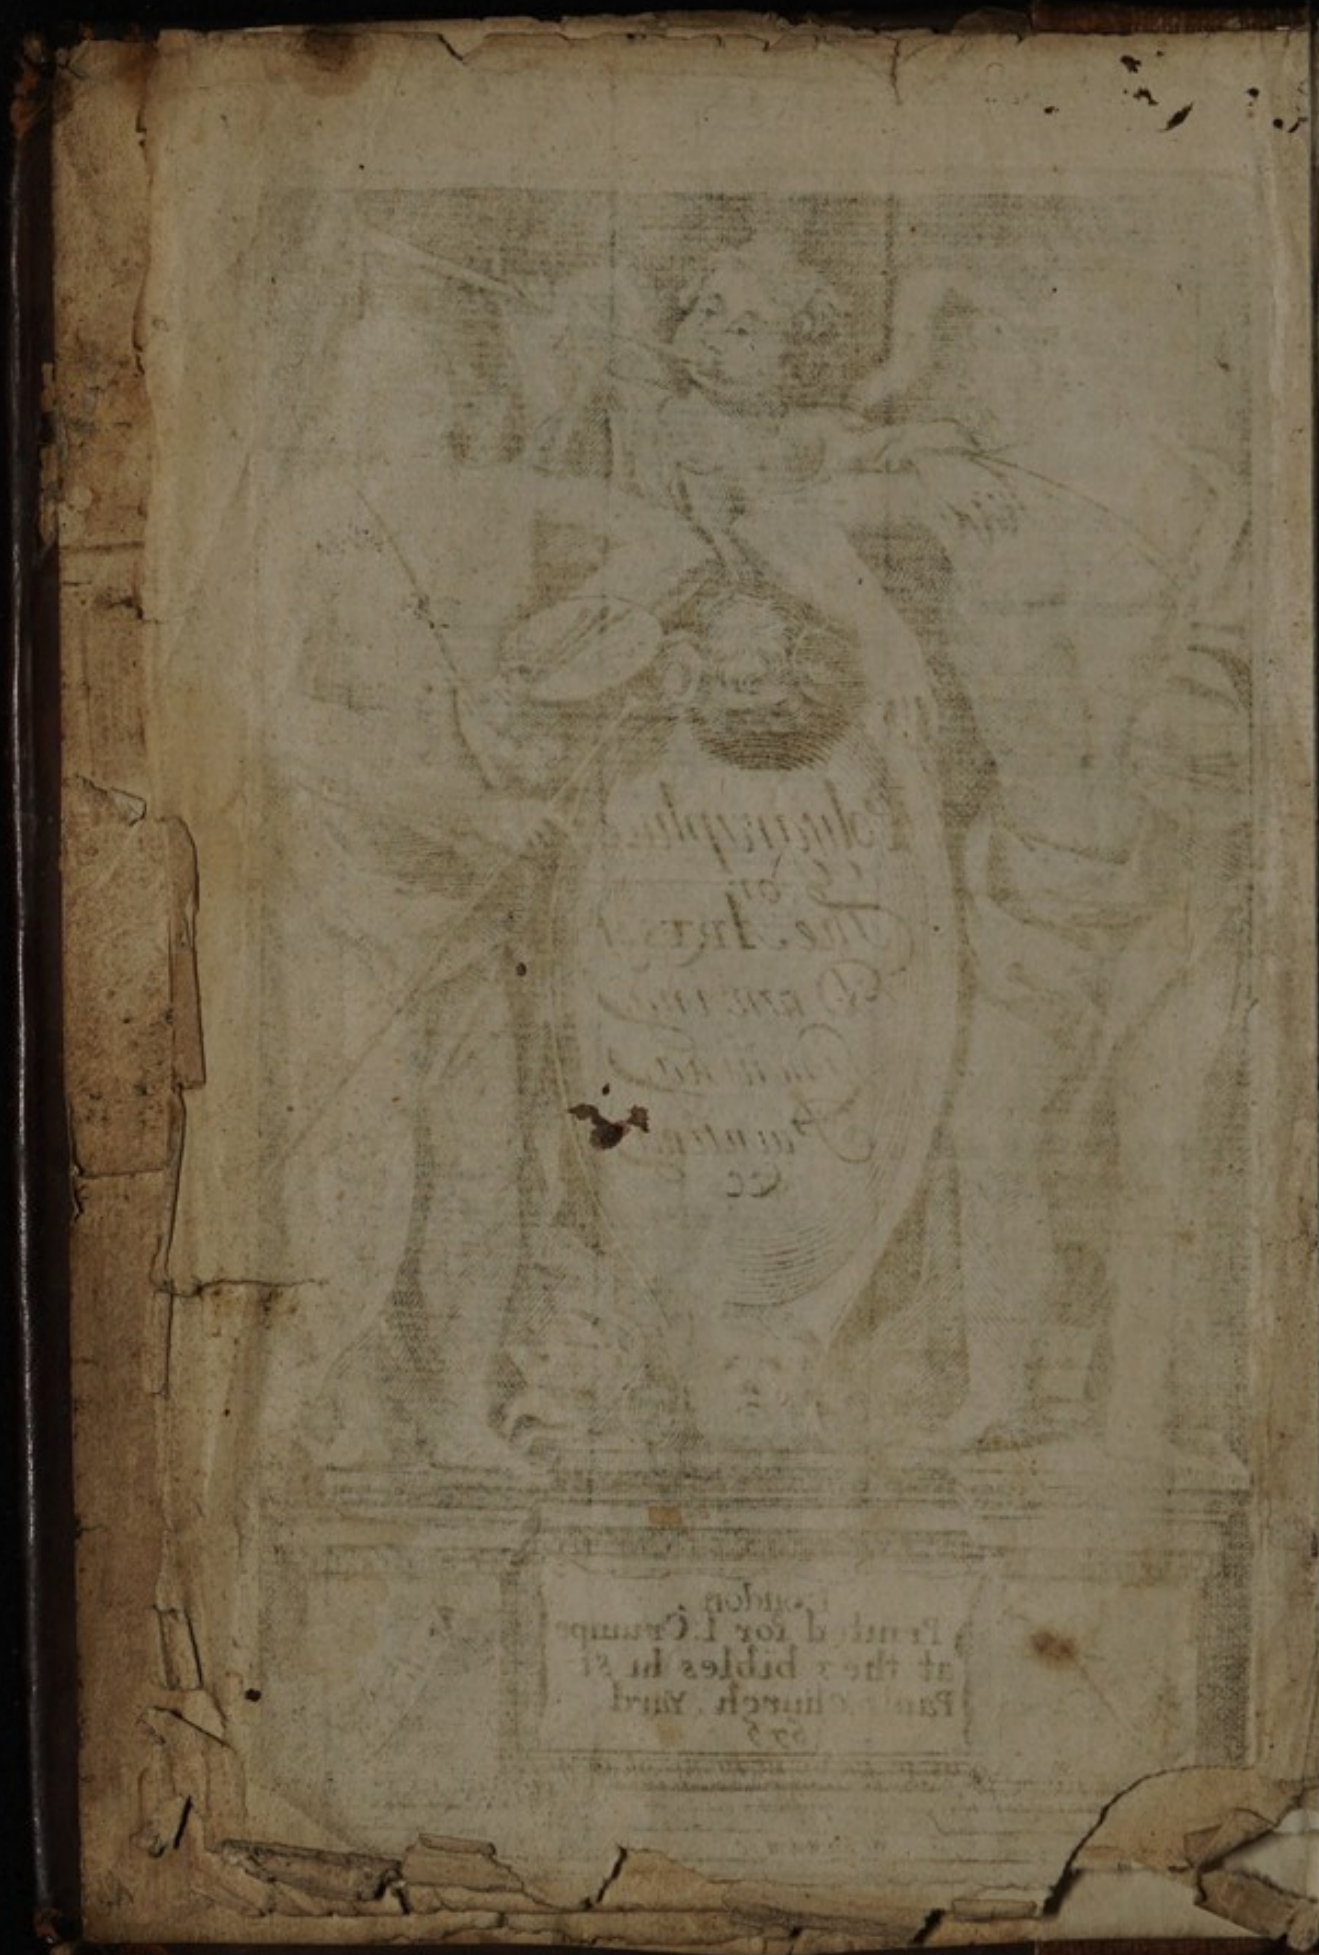 or
The Arts of
Drawing
Limning
Painting
&c
London
Printed for I. Crumpe
at the 3 bibles in St
Pauls Church Yard
1675